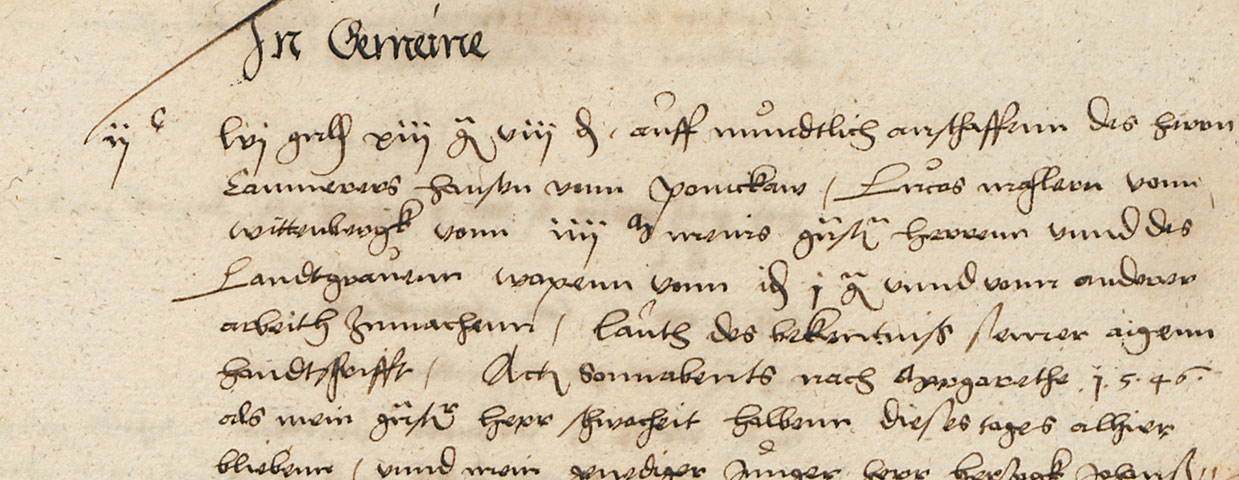 In Gemeine
ijc lvj guld xiij gr viij d, auff mundtlich anschaffenn des herrn
Cammerers Hansen vonn Ponickaw / Lucas malern vonn
Wittenbergk vonn iiij meins gnsten herrenn unnd des
Landtgrauenn wapenn vonn j gr unnd vonn anderer
arbeith zumachenn / lauth des bekentnis seiner aigenn
handtschrifft / Actum Sonnabents nach Margarethe 1.5.46.
als mein gnster herr schwacheit halbenn dieses tages alhier
bliebenn / unnd mein gnediger Junger herr hertzogk Johans